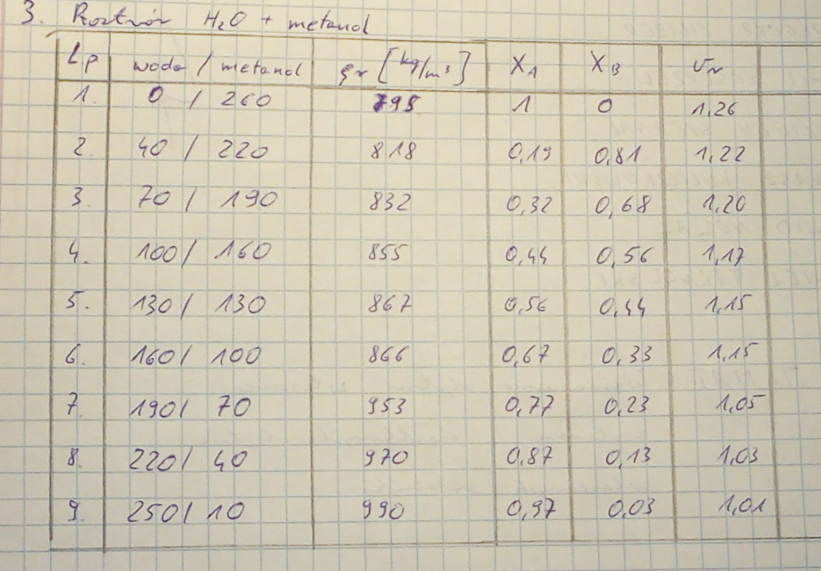 3. Roztwór H₂O + metanol
Lp woda / metanol ρr [kg/m³] XA XB Vr
1. 0 / 260 795 1 0 1,26
2. 40 / 220 818 0,19 0,81 1,22
3. 70 / 190 832 0,32 0,68 1,20
4. 100 / 160 855 0,44 0,56 1,17
5. 130 / 130 867 0,56 0,44 1,15
6. 160 / 100 866 0,67 0,33 1,15
7. 190 / 70 953 0,77 0,23 1,05
8. 220 / 40 970 0,87 0,13 1,03
9. 250 / 10 990 0,97 0,03 1,01